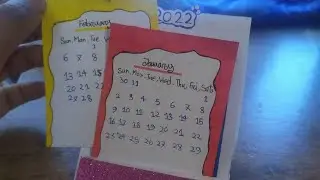 2022
February
Sun, Mon, Tue, Wed
1
6 7 8
13 14 15
20 21 22
27 28
January
Sun, Mon, Tue, Wed, Thu, Fri, Sat
1
2 3 4 5 6 7 8
9 10 11 12 13 14 15
16 17 18 19 20 21 22